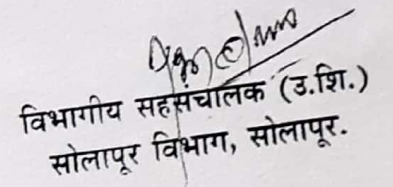 विभागीय सहसंचालक (उ.शि.)
सोलापूर विभाग, सोलापूर.